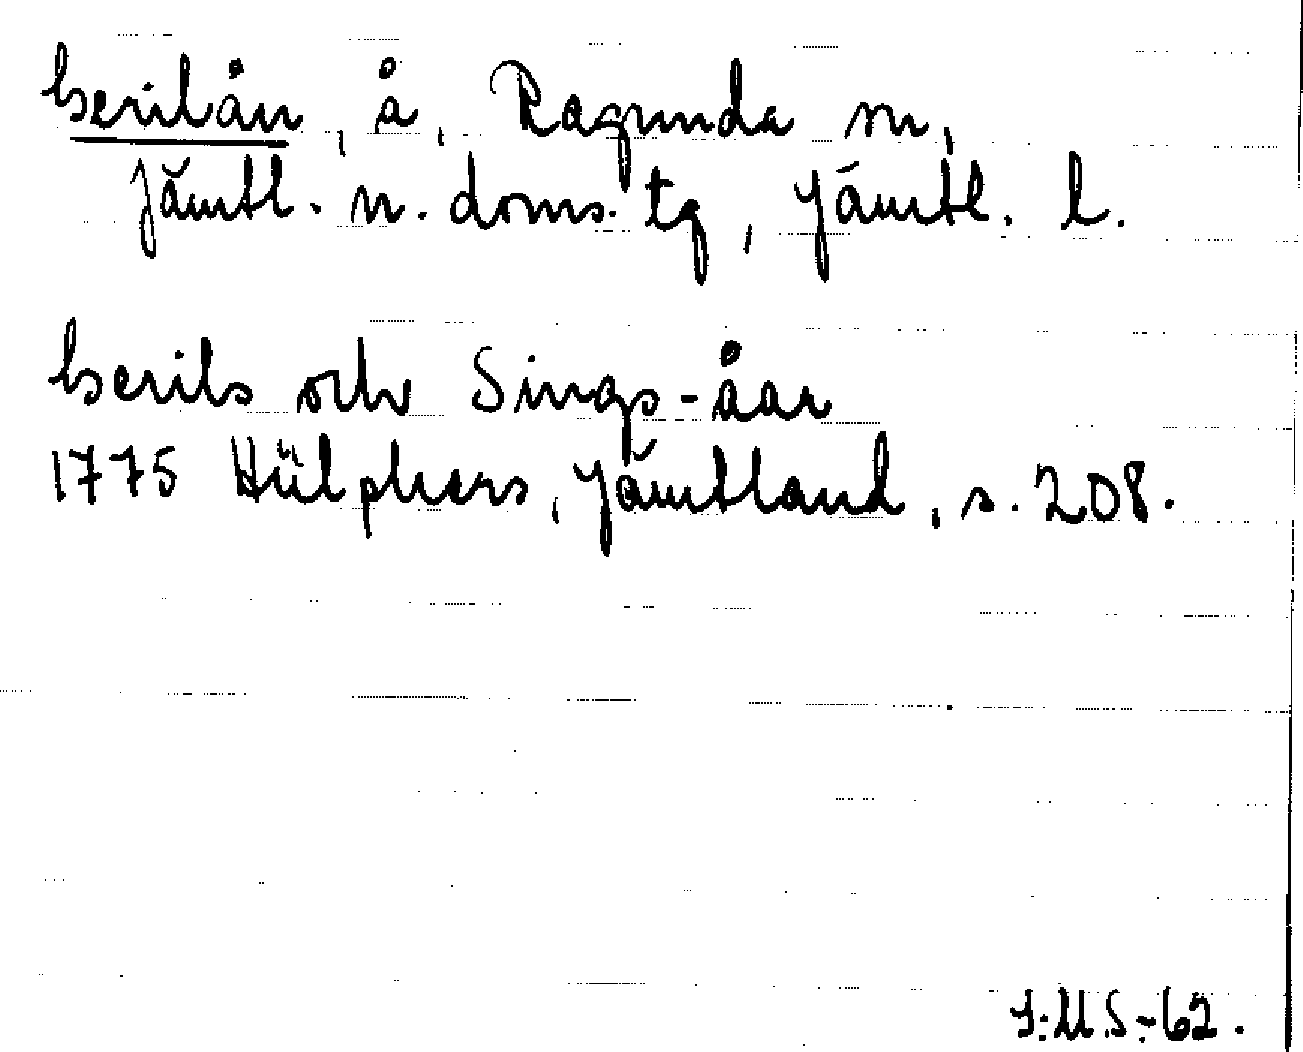 Gerilån, å, Ragunda sn,
Jämtl. n. doms. tg, Jämtl. l.
Gerils och Sings-åar
1775 Hülphers, Jämtland, s. 208.
-62.